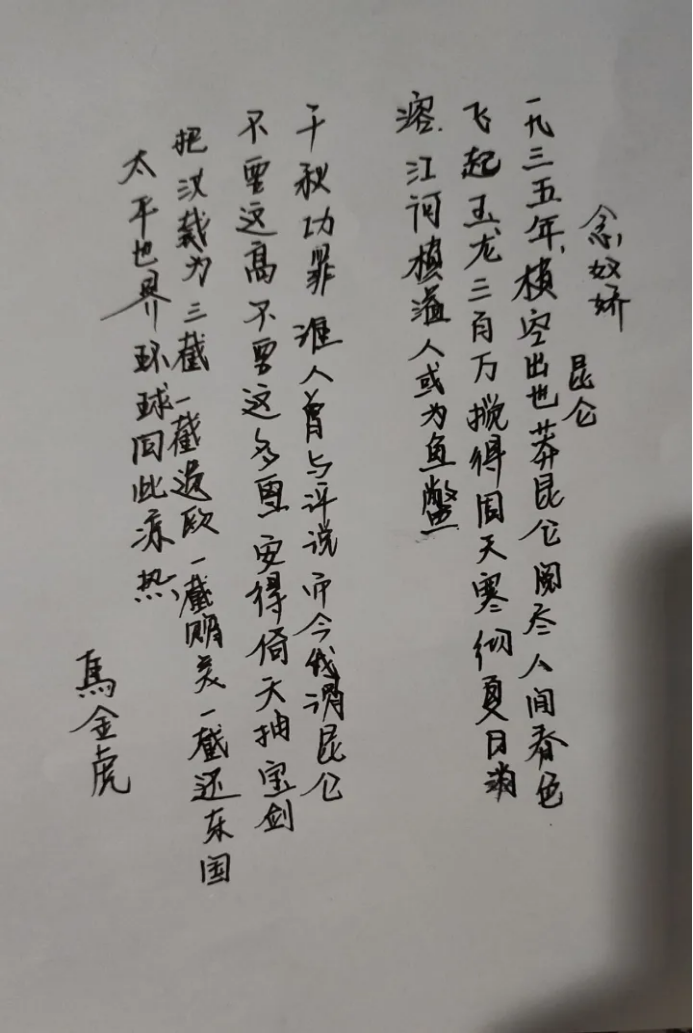 念奴娇
昆仑
一九三五年，横空出世莽昆仑阅尽人间春色
飞起玉龙三百万搅得周天寒彻夏日消
溶.江河横溢人或为鱼鳖
千秋功罪谁人曾与评说而今我谓昆仑
不要这高不要这多雪安得倚天抽宝剑
把汝裁为三截一截遗欧一截赠美一截还东国
太平世界环球同此凉热
馬金虎